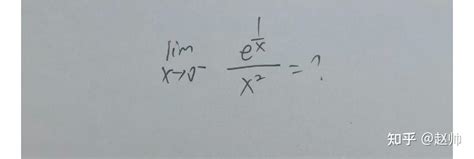 lim x→0⁻ e^(1/x) / x² = ?
知乎 @赵帅